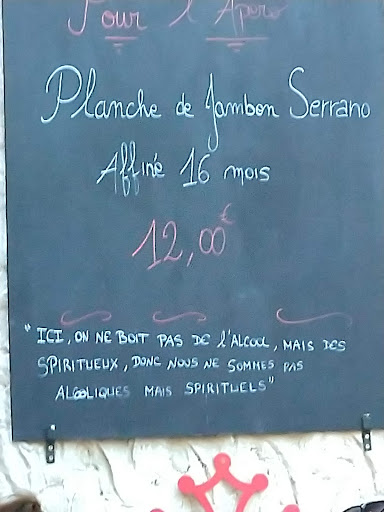 Pour l'Apéro
Planche de Jambon Serrano
Affiné 16 mois
12,00€
"ICI, ON NE BOIT PAS DE l'ALCOOL, MAIS DES
SPIRITUEUX, DONC NOUS NE SOMMES PAS
ALCOOLIQUES MAIS SPIRITUELS"